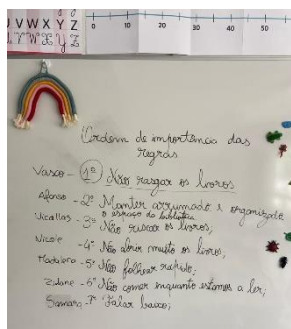 U V W X Y Z
U V W X Y Z
0 10 20 30 40 50
Ordem de importância das
regras
Vasco - 1º Não rasgar os livros
Afonso - 2º Manter arrumado e organizado
o espaço da biblioteca
- 3º Não riscar os livros;
Nicole - 4º Não abrir muito os livros;
Madalena - 5º Não folhear rápido;
Zidane - 6º Não comer enquanto estamos a ler;
Samara - 7º Falar baixo;